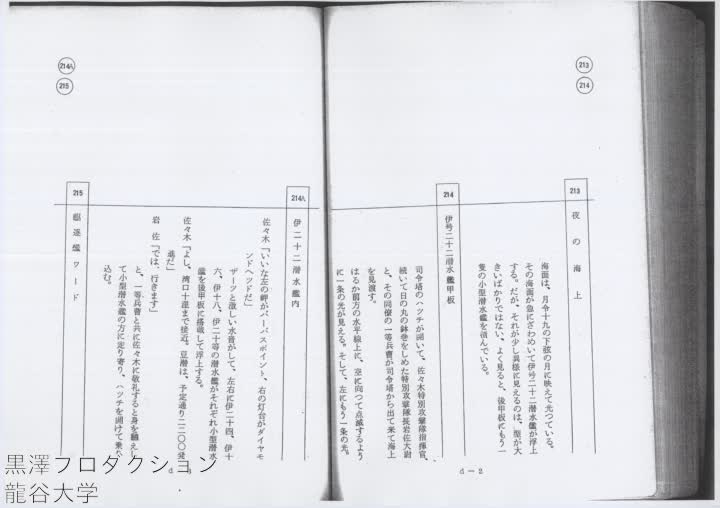 213
214
213
夜の海上
海面は、月令十九の下弦の月に映えて光つている。
その海面が急にざわめいて伊号二十二潜水艦が浮上
する。だが、それが少し異様に見えるのは、型が大
きいばかりではない、よく見ると、後甲板にもう一
隻の小型潜水艦を積んでいる。
214
伊号二十二潜水艦甲板
司令塔のハツチが開いて、佐々木特別攻撃隊指揮官、
続いて日の丸の鉢巻をしめた特別攻撃隊長岩佐大尉
と、その同僚の一等兵曹が司令塔から出て来て海上
を見渡す。
はるか前方の水平線上に、空に向つて点滅するよう
に一条の光が見える。そして、左にもう一条の光。
d-2
214A
215
214A
伊二十二潜水艦内
佐々木「いいな左の岬がバーバスポイント、右の灯台がダイヤモ
ンドヘツドだ」
ザーツと激しい水音がして、左右に伊二十四、伊十
六、伊十八、伊二十等の潜水艦がそれぞれ小型潜水
艦を後甲板に搭載して浮上する。
佐々木「よし、湾口十浬まで接近。豆潜は、予定通り二二〇〇発
進だ」
岩佐「では、行きます」
と、一等兵曹と共に佐々木に敬礼すると身を飜えし
て小型潜水艦の方に走り寄り、ハツチを開けて乗り
込む。
215
駆逐艦ワード
d-3
黒澤プロダクション
龍谷大学